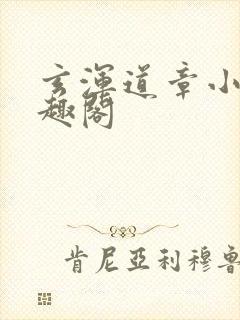 玄渾道章小
趣閣
肯尼亞利穆魯